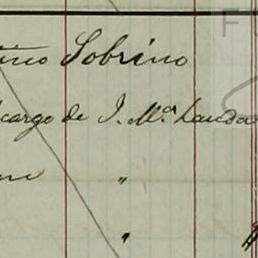 tino Sobrino
cargo de J. Mª. Landa
"
"